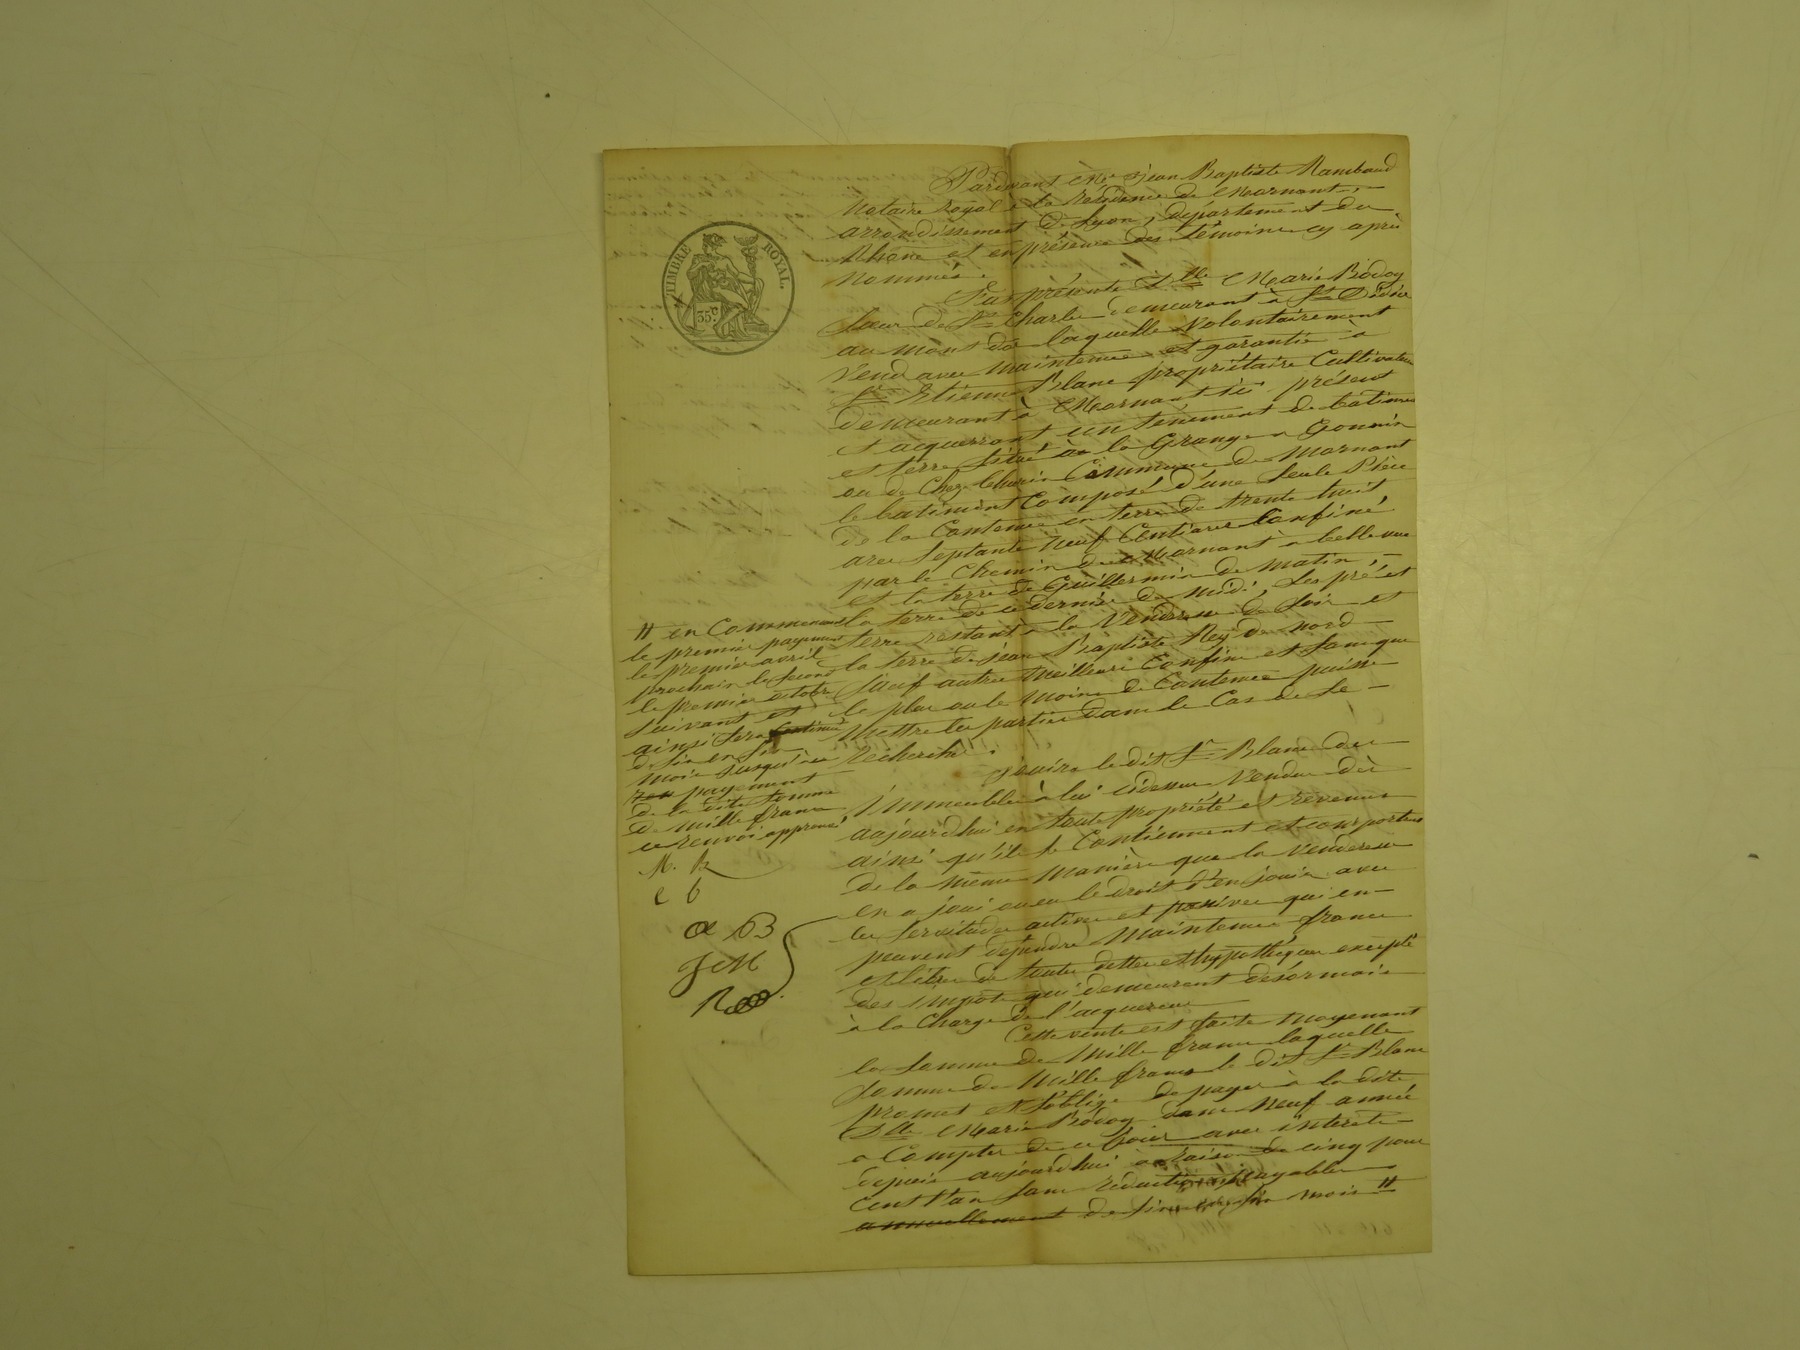 TIMBRE ROYAL.
35 c
Pardevant Me jean Baptiste Rambaud
Notaire royal à la résidence de Mornant,
arrondissement de Lyon, département du
Rhône et en présence des témoins cy après
Nommés.
fut présente Dlle Marie Bovoy
Sœur de St Charles demeurant à St Didier
au mont d'or laquelle volontairement
Vend avec maintenue et garantie à
Sr Etienne Blanc propriétaire Cultivateur
demeurant à Mornant ici présent
et acquerrant un tènement de batiment
et terre situé à la Grange Gonnin
ou de Chez Commune de Mornant
le batiment Composé d'une seule Pièce
de la Contenue en terre de trente huit
ares septante neuf Centiares Confiné
par le Chemin de Mornant à belle vue
et la terre de Guillermin de matin,
la terre de ce dernier de midi, les pré et
terre restant à la Venderesse de soir et
la terre de jean Baptiste Rey de nord
sauf autres meilleurs Confins et sans que
le plus ou le moins de Contenue puisse
mettre les parties dans le Cas de se
recherche.
jouira le dit Sr Blanc de
l'immeuble à lui cidessus Vendu dès
aujourdhui en toute propriété et revenus
ainsi qu'ils se Contiennent et comportent
de la même manière que la venderesse
en a joui ou eu le droit d'en jouir avec
les servitudes actives et passives qui en
peuvent dépendre Maintenue franc
et libre de toutes dettes et hypothéques excepté
des impots qui demeurent désormais
à la Charge de l'acquereur
Cette vente est faite moyenant
la somme de Mille francs laquelle
somme de Mille francs le dit Sr Blanc
promet et s'oblige de payer à la dite
Dlle Marie Bovoy dans neuf années
a Compter de ce jour avec intérêts
depuis aujourdhui à raison de cinq pour
Cent l'an sans réduction payables
annuellement de six en six mois #
# en Commencant
le premier payement
le premier avril
prochain le second
le premier octobre
suivant et
ainsi sera Continué
de six en six
mois jusqu'au
payement
de la dite somme
de mille francs
ce renvoi approuvé
M. B
e b
B
J M
R